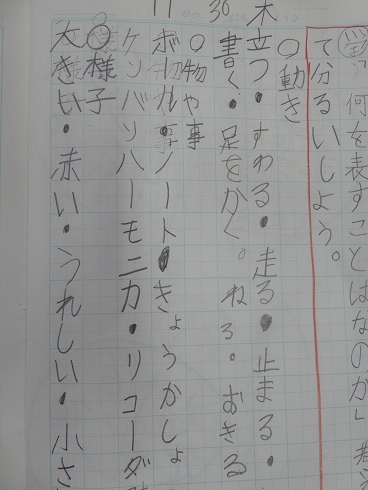 11 30 木
何を表すことばなのか」考え
て分るいしよう。
○動き
立つ・すわる・走る・止まる・
書く・足をかく。ねる。おきる
○物や事
ボール・ノート・きょうかしょ
ケンバンハーモニカ・リコーダ
○様子
大きい・赤い・うれしい・小さ